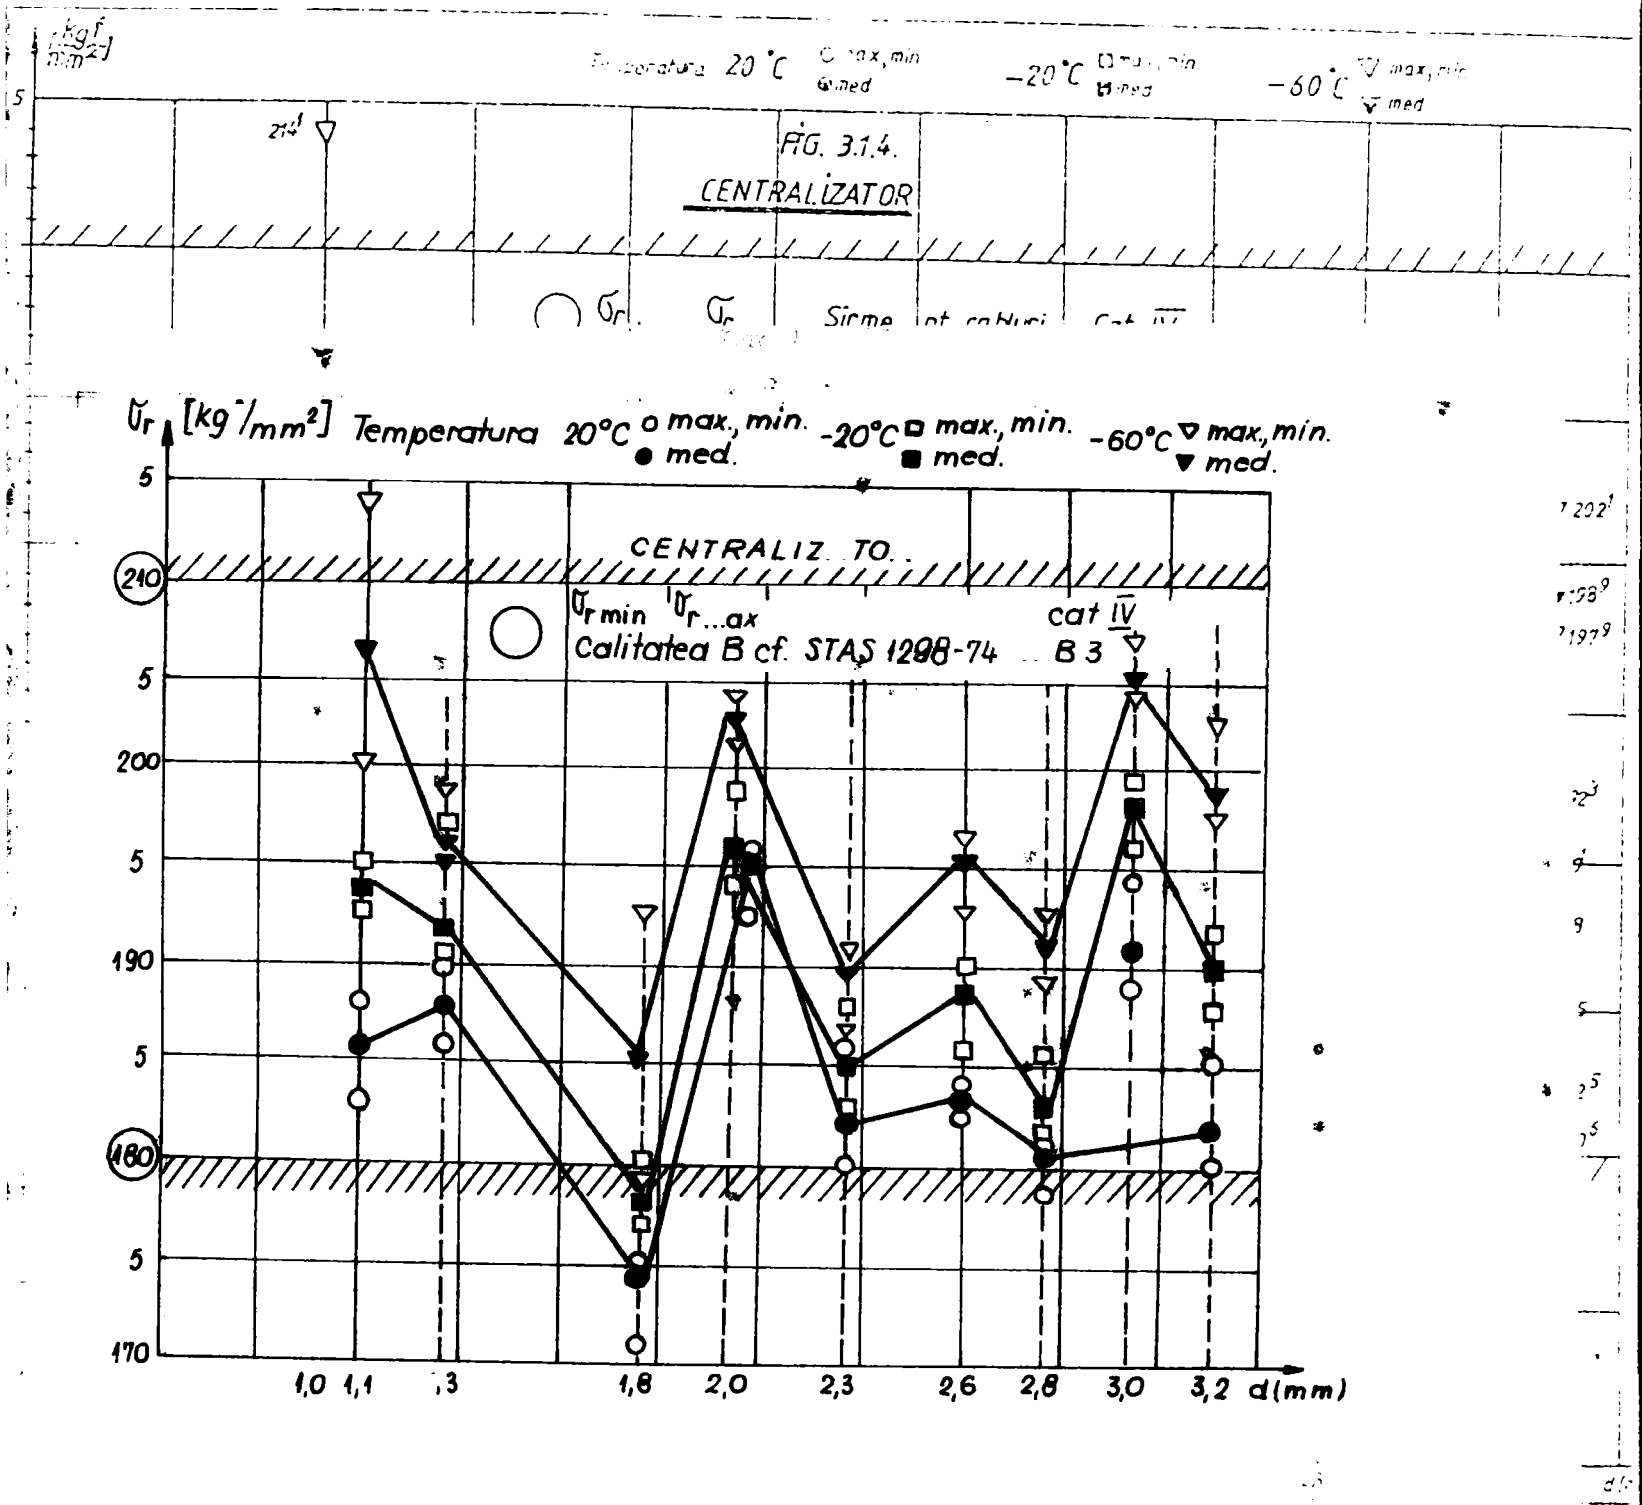 kgf
mm²]
20°C max, min
med
-20°C
med
-60°C max, min
med
5
214¹
FIG. 3.1.4.
CENTRALIZATOR
σr σr Sîrme pt cabluri Cat IV
σr [kg/mm²] Temperatura 20°C max., min. -20°C max., min. -60°C max., min.
med. med. med.
5
CENTRALIZ TO
210
σr min σr ...ax cat IV
Calitatea B cf. STAS 1298-74 B 3
5
200
5
190
5
180
5
170
1,0 1,1 ,3 1,8 2,0 2,3 2,6 2,8 3,0 3,2 d(mm)
202¹
198⁹
197⁹